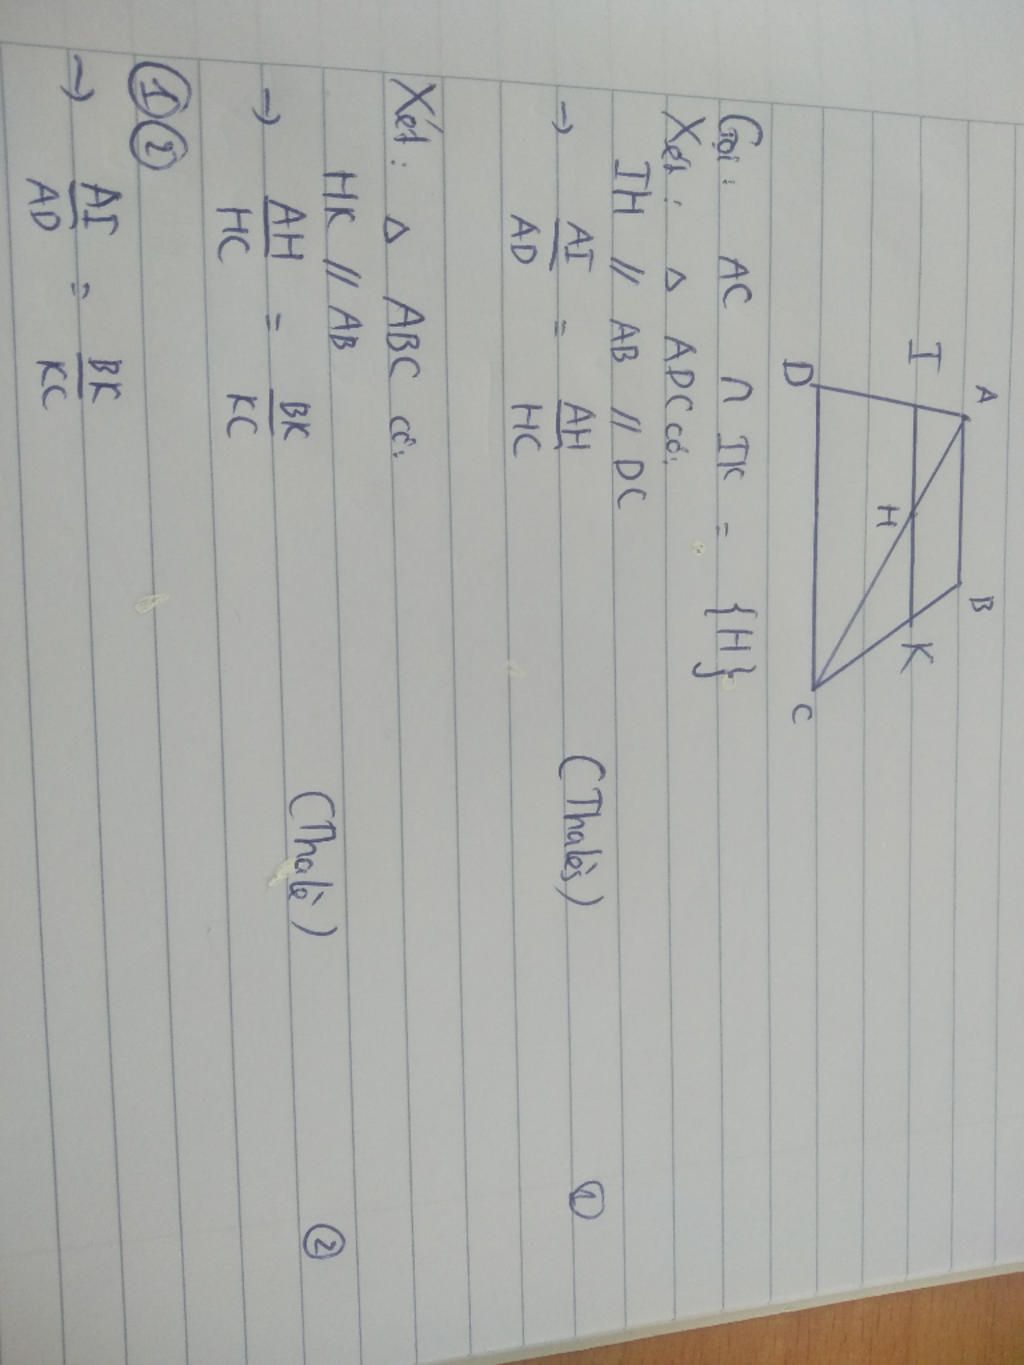 A B
I H K
D C
Gọi: AC ∩ IK = {H}
Xét: Δ ADC có:
IH // AB // DC
→ AI/AD = AH/HC (Thalès) ①
Xét: Δ ABC có:
HK // AB
→ AH/HC = BK/KC (Thalè) ②
① ②
→ AI/AD = BK/KC